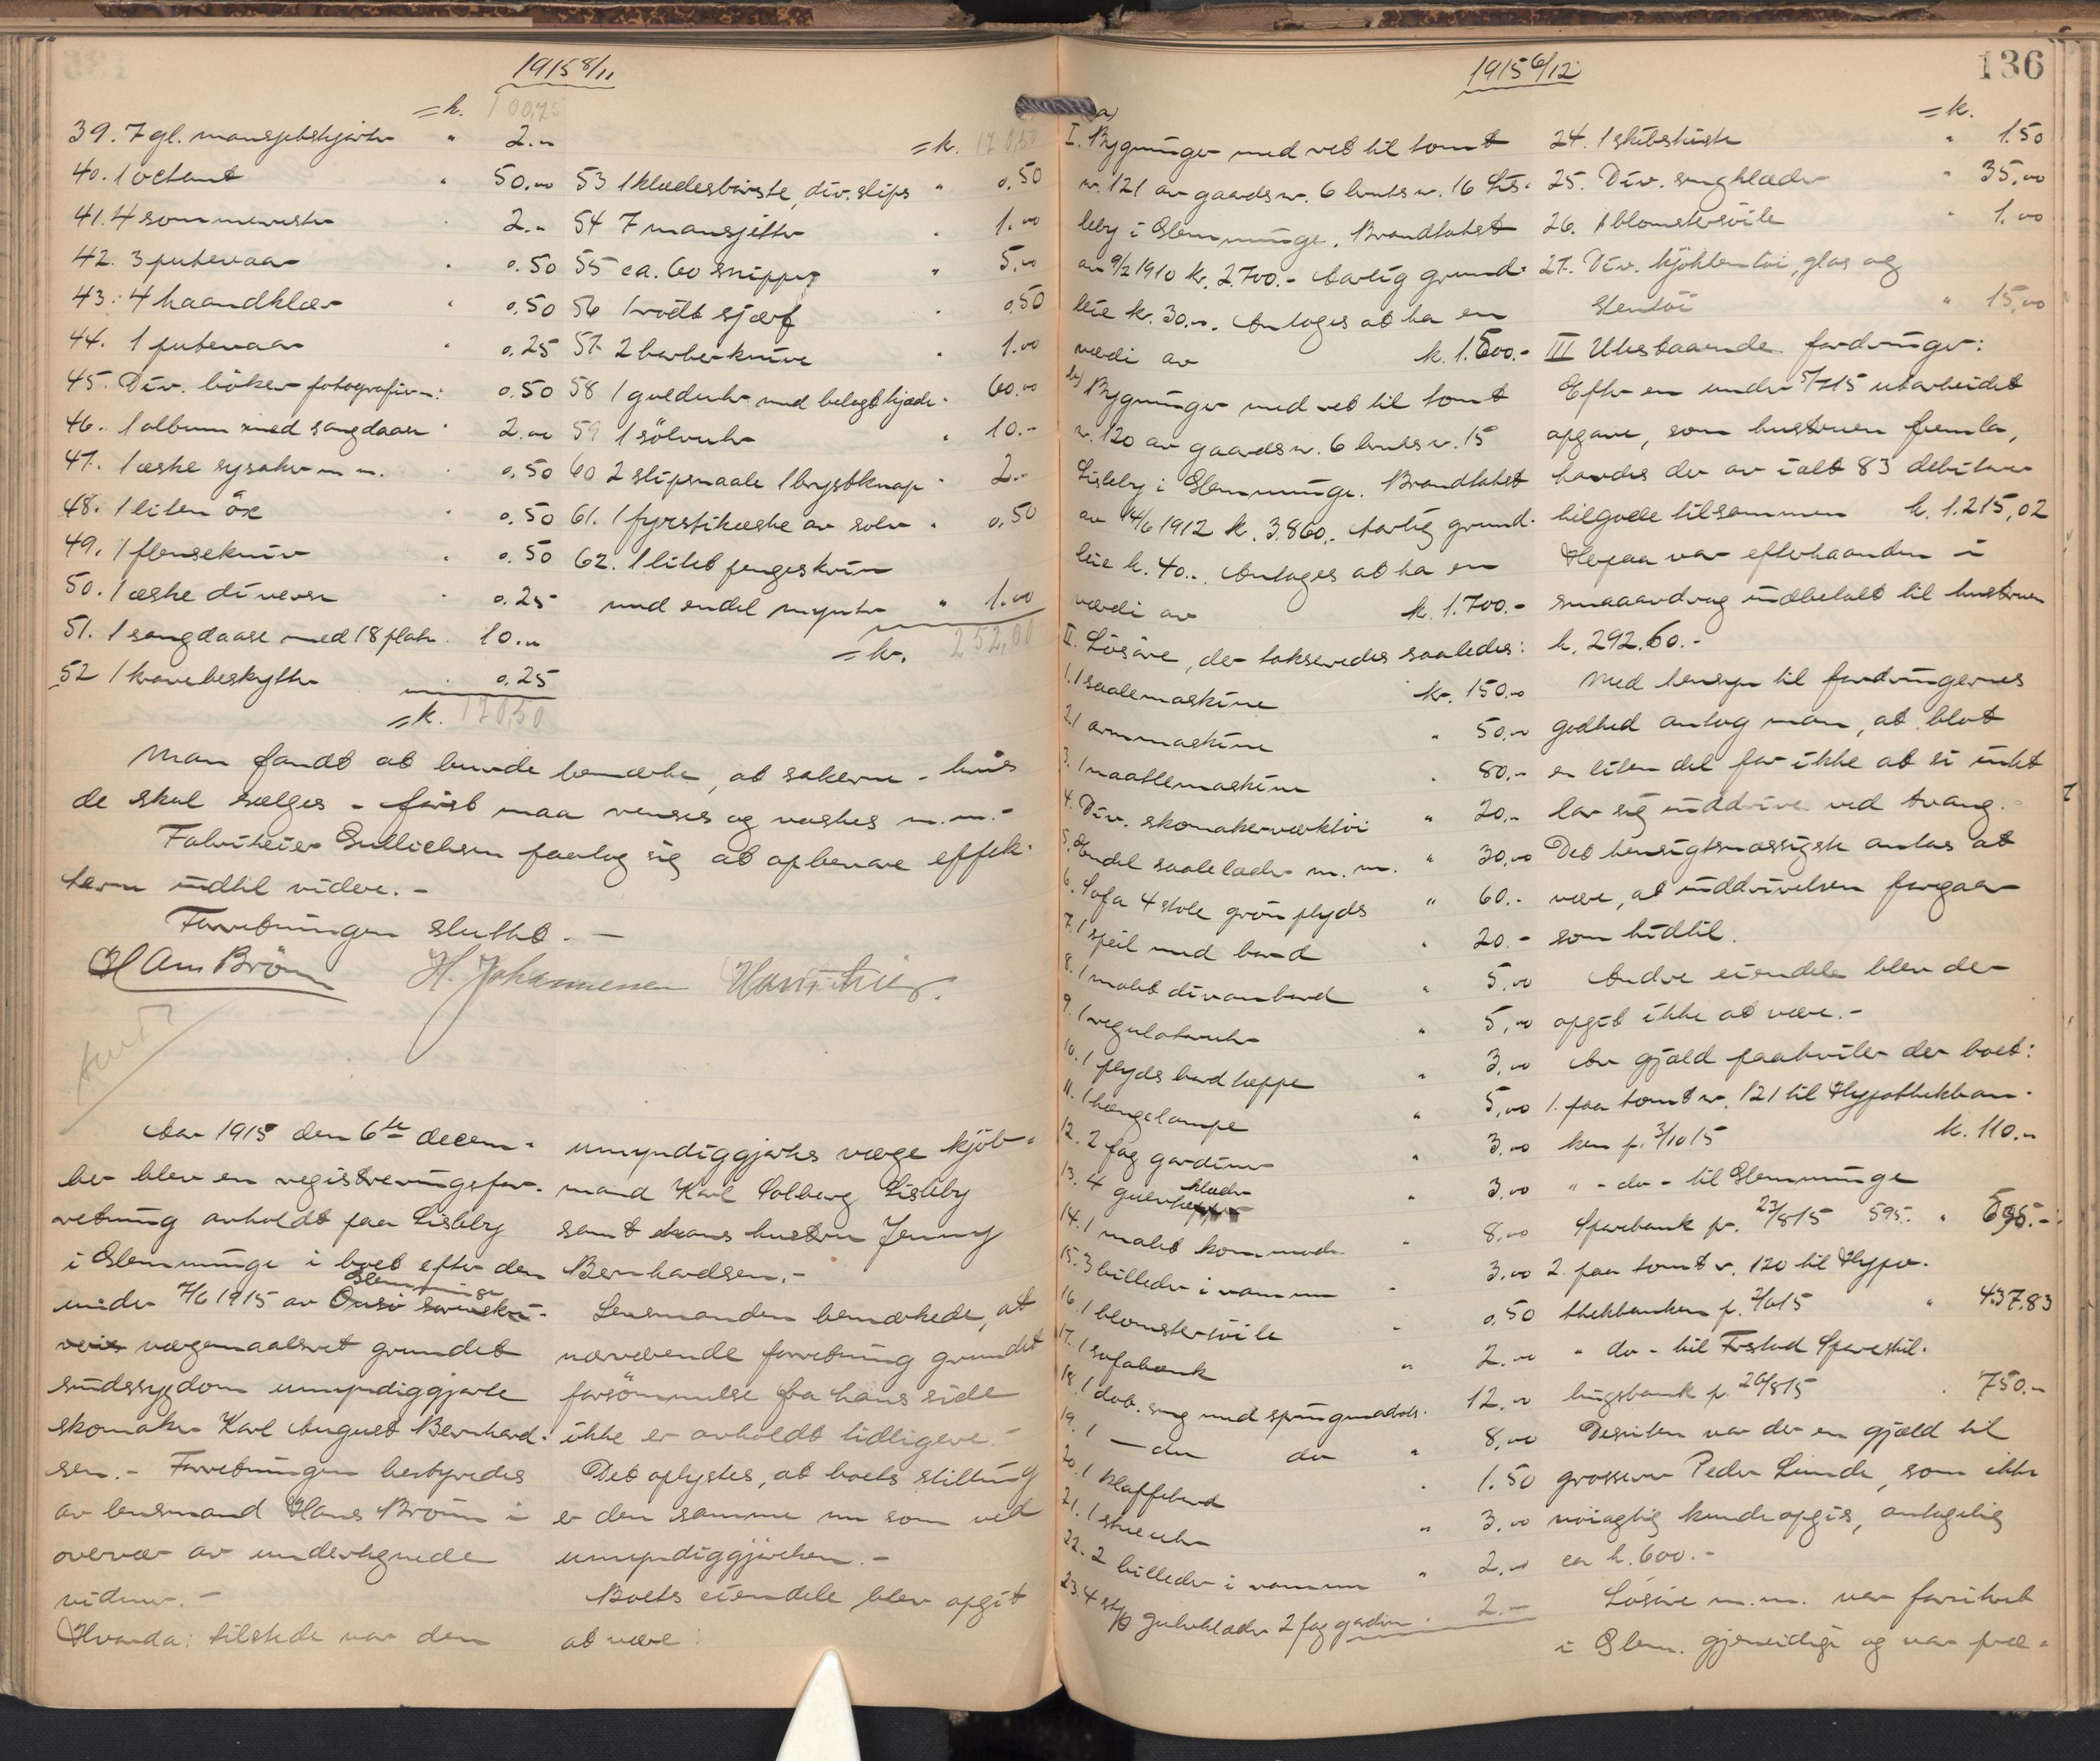 1915 8/11
= k. 100,75
39. 7 gl. mansjetskjorter " 2.-
40. 1 octant " 50.00
41. 4 sommervester " 2.-
42. 3 putevaar " 0.50
43. 4 haandklær " 0.50
44. 1 putevaar " 0.25
45. Div. böker fotografier m: 0.50
46. 1 album med sangdaase " 2.00
47. 1 æske sysaker m.m. " 0.50
48. 1 liten öx " 0.50
49. 1 flensekniv " 0.50
50. 1 æske diverse " 0.25
51. 1 sangdaase med 18 plater " 10.00
52 1 kravebeskytter " 0.25
= k. 170,50
= k. 170,50
53 1 klædesbörste, div. slips " 0.50
54 7 mansjetter " 1.00
55 ca. 60 snipper " 5.00
56 1 rödt sjærf " 0.50
57 2 barberknive " 1.00
58 1 guldur med belagt kjæde " 60.00
59 1 sölvuhr " 10.-
60 2 slipsnaale 1 brystknap " 2.-
61. 1 fyrstikæske av sølv " 0.50
62. 1 litet pengeskrin
med endel mynter " 1.00
= kr. 252,00
Man fandt at burde bemærke, at sakerne - hvis
de skal sælges - först maa renses og vaskes m.m.-
Fabrikeier Gullichsen paatog sig at opbevare effek-
terne indtil videre.-
Forretningen sluttet. -
H. Johannessen
Aar 1915 den 6te decem-
ber blev en registreringsfor-
retning avholdt paa Lisleby
i Glemminge i boet efter den
Glemminge
under 7/6 1915 av Onsö
vergemaalsret grundet
sindssygdom umyndiggjorte
skomaker Karl August Bernhard-
sen.- Forretningen bestyredes
av lensmand Hans Bröm i
overvær av undertegnede
vidner.-
Hvorda: tilstede var den
umyndiggjortes verge kjöb-
mand Karl Solberg Lisleby
samt hans hustru Jenny
Bernhardsen.-
Lensmanden bemerkede, at
nærværende forretning grundet
forsömmelse fra hans side
ikke er avholdt tidligere.-
Det oplystes, at boets stilling
er den samme nu som ved
umyndiggjörelsen.-
Boets eiendele blev opgit
at være:
136
1915 6/12
a)
I. Bygninger med ret til tomt
nr. 121 av gaardsnr. 6 bruksnr. 16 Lis-
leby i Glemminge. Brandtakst
av 9/2 1910 kr. 2.700.- Aarlig grund-
leie kr. 30.-. Antages at ha en
værdi av k. 1.500.-
b) Bygninger med ret til tomt
nr. 120 av gaardsnr. 6 bruksnr. 15
Lisleby i Glemminge. Brandtakst
av 14/6 1912 k. 3.860.- Aarlig grund-
leie k. 40.-. Antages at ha en
værdi av k. 1.700.-
II. Lösöre, der takseredes saaledes:
1. 1 saalemaskine kr. 150.00
2. 1 armmaskine " 50.00
3. 1 naatlemaskine " 80.-
4. Div. skomakerverktöi " 20.-
5. Endel saalelæder m.m. " 30.00
6. Sofa 4 stole grön plyds " 60.-
7. 1 speil med bord " 20.-
8. 1 malet divanbord " 5.00
9. 1 regulatoruhr " 5.00
10. 1 plyds bordtæppe " 3.00
11. 1 hængelampe " 5.00
12. 2 fag gardiner " 3.00
klæder
13. 4 gulv " 3.00
14. 1 malet kommode " 8.00
15. 3 billeder i ramme " 3.00
16. 1 blomstersöile " 0.50
17. 1 sofabænk " 2.00
18. 1 dob. seng med springmadras " 12.00
19. 1 - do do " 8.00
20. 1 klaffebord " 1.50
21. 1 stueuhr " 3.00
22. 2 billeder i ramme " 2.00
23. 4 gulvklæder 2 fag gardin " 2.-
= k.
24. 1 skibskiste " 1.50
25. Div. sengklæder " 35.00
26. 1 blomstersöile " 1.00
27. Div. kjökkentöi, glas og
stentöi " 15.00
III Utestaaende fordringer:
Efter en under 5/7 15 utarbeidet
opgave, som hustruen fremla,
havdes der av ialt 83 debitorer
tilgode tilsammen k. 1.215,02
Herpaa var efterhaanden i
smaaavdrag indbetalt til hustruen
k. 292.60.-
Med hensyn til fordringernes
godhed antog man, at blot
en liten del for ikke at si intet
lar sig inddrive ved tvang.
Det hensigtsmæssigste antas at
være, at inddrivelsen foregaar
som hidtil.
Andre eiendele blev der
opgit ikke at være.-
Av gjæld paahviler der boet:
1. paa tomt nr. 121 til Hypothekban-
ken p. 3/10 15 k. 110.-
" - do - til Glemminge
Sparebank pr. 23/8 15 595. " 595.-
2. paa tomt nr. 120 til Hypo-
thekbanken p. 2/6 15 " 437.83
" - do - til Fr.stad Sparestil-
lingsbank p. 20/8 15 " 750.-
Desuten var der en gjæld til
grosserer Peder Lunde, som ikke
nöiagtig kunde opgis, antagelig
ca k. 600.-
Lösöre m.m. var forsikret
i Glem. gjensidige og var præ-